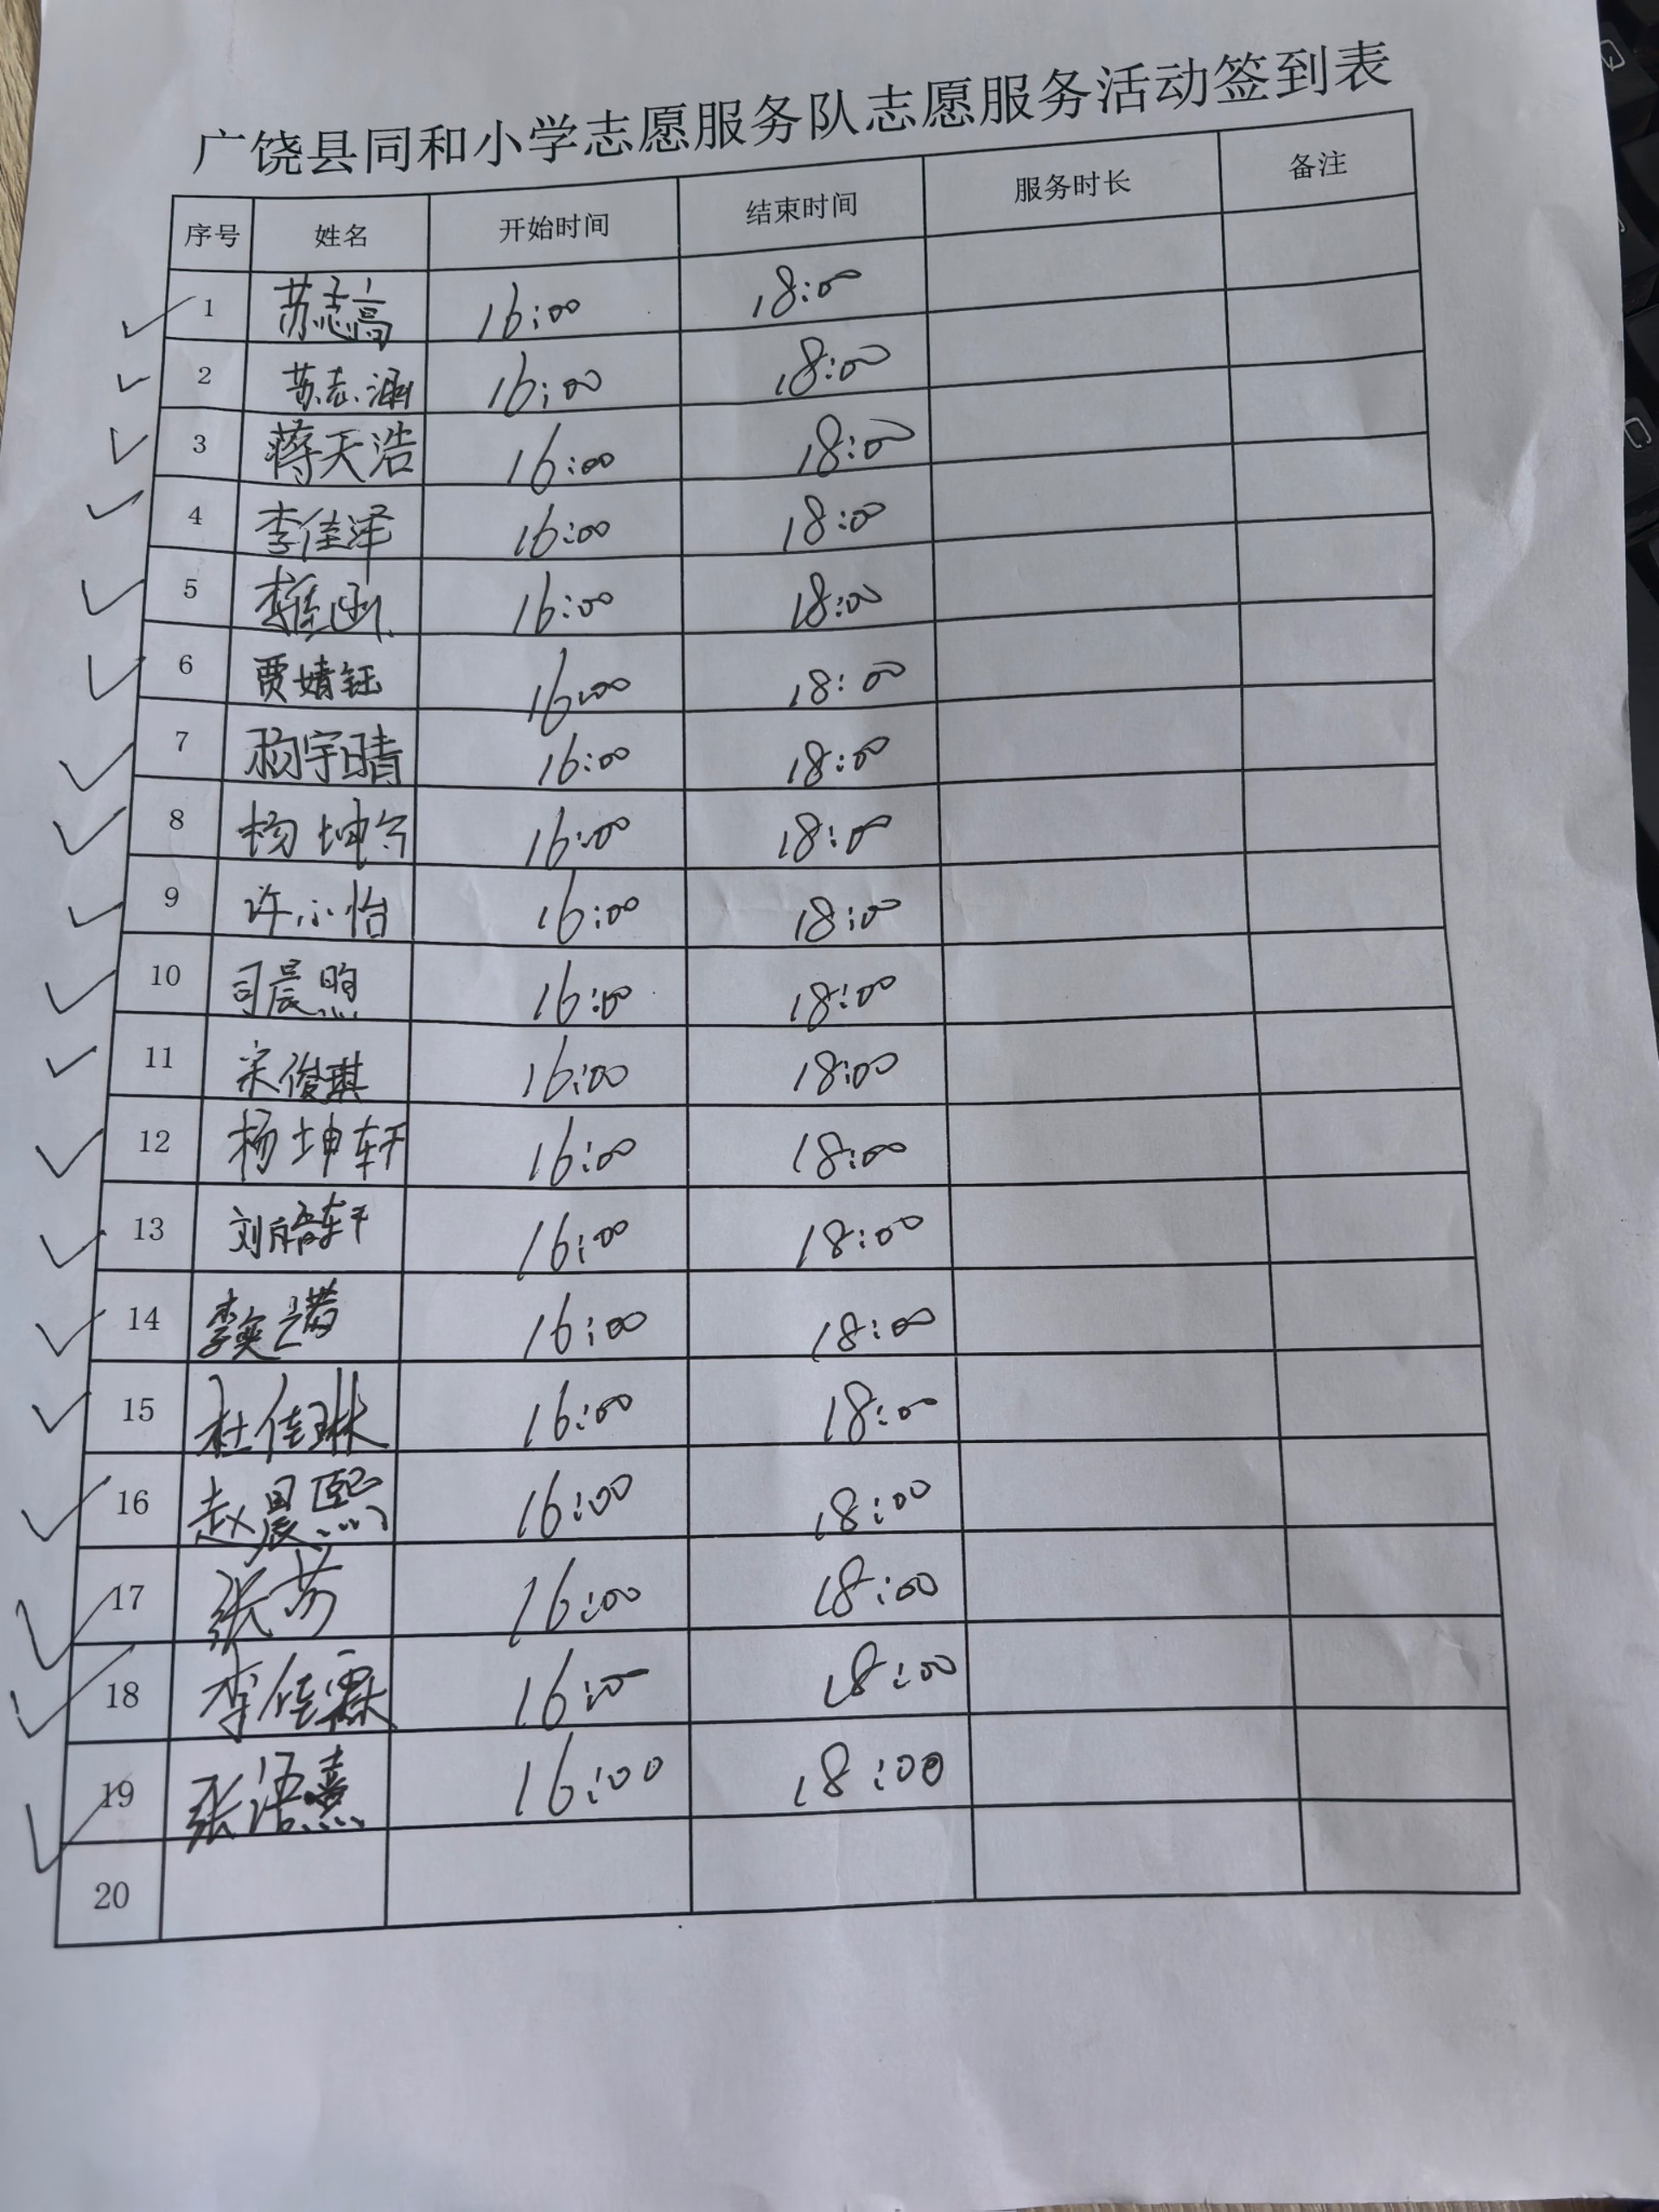 广饶县同和小学志愿服务队志愿服务活动签到表
序号 姓名 开始时间 结束时间 服务时长 备注
1 苏志高 16:00 18:00
2 苏志涵 16:00 18:00
3 蒋天浩 16:00 18:00
4 李佳泽 16:00 18:00
5 李佳函 16:00 18:00
6 贾婧钰 16:00 18:00
7 杨宇晴 16:00 18:00
8 杨坤 16:00 18:00
9 许小怡 16:00 18:00
10 司晨煦 16:00 18:00
11 宋俊琪 16:00 18:00
12 杨坤轩 16:00 18:00
13 刘 轩 16:00 18:00
14 李奕诺 16:00 18:00
15 杜佳琳 16:00 18:00
16 赵晨熙 16:00 18:00
17 张 16:00 18:00
18 李佳霖 16:00 18:00
19 张语熹 16:00 18:00
20